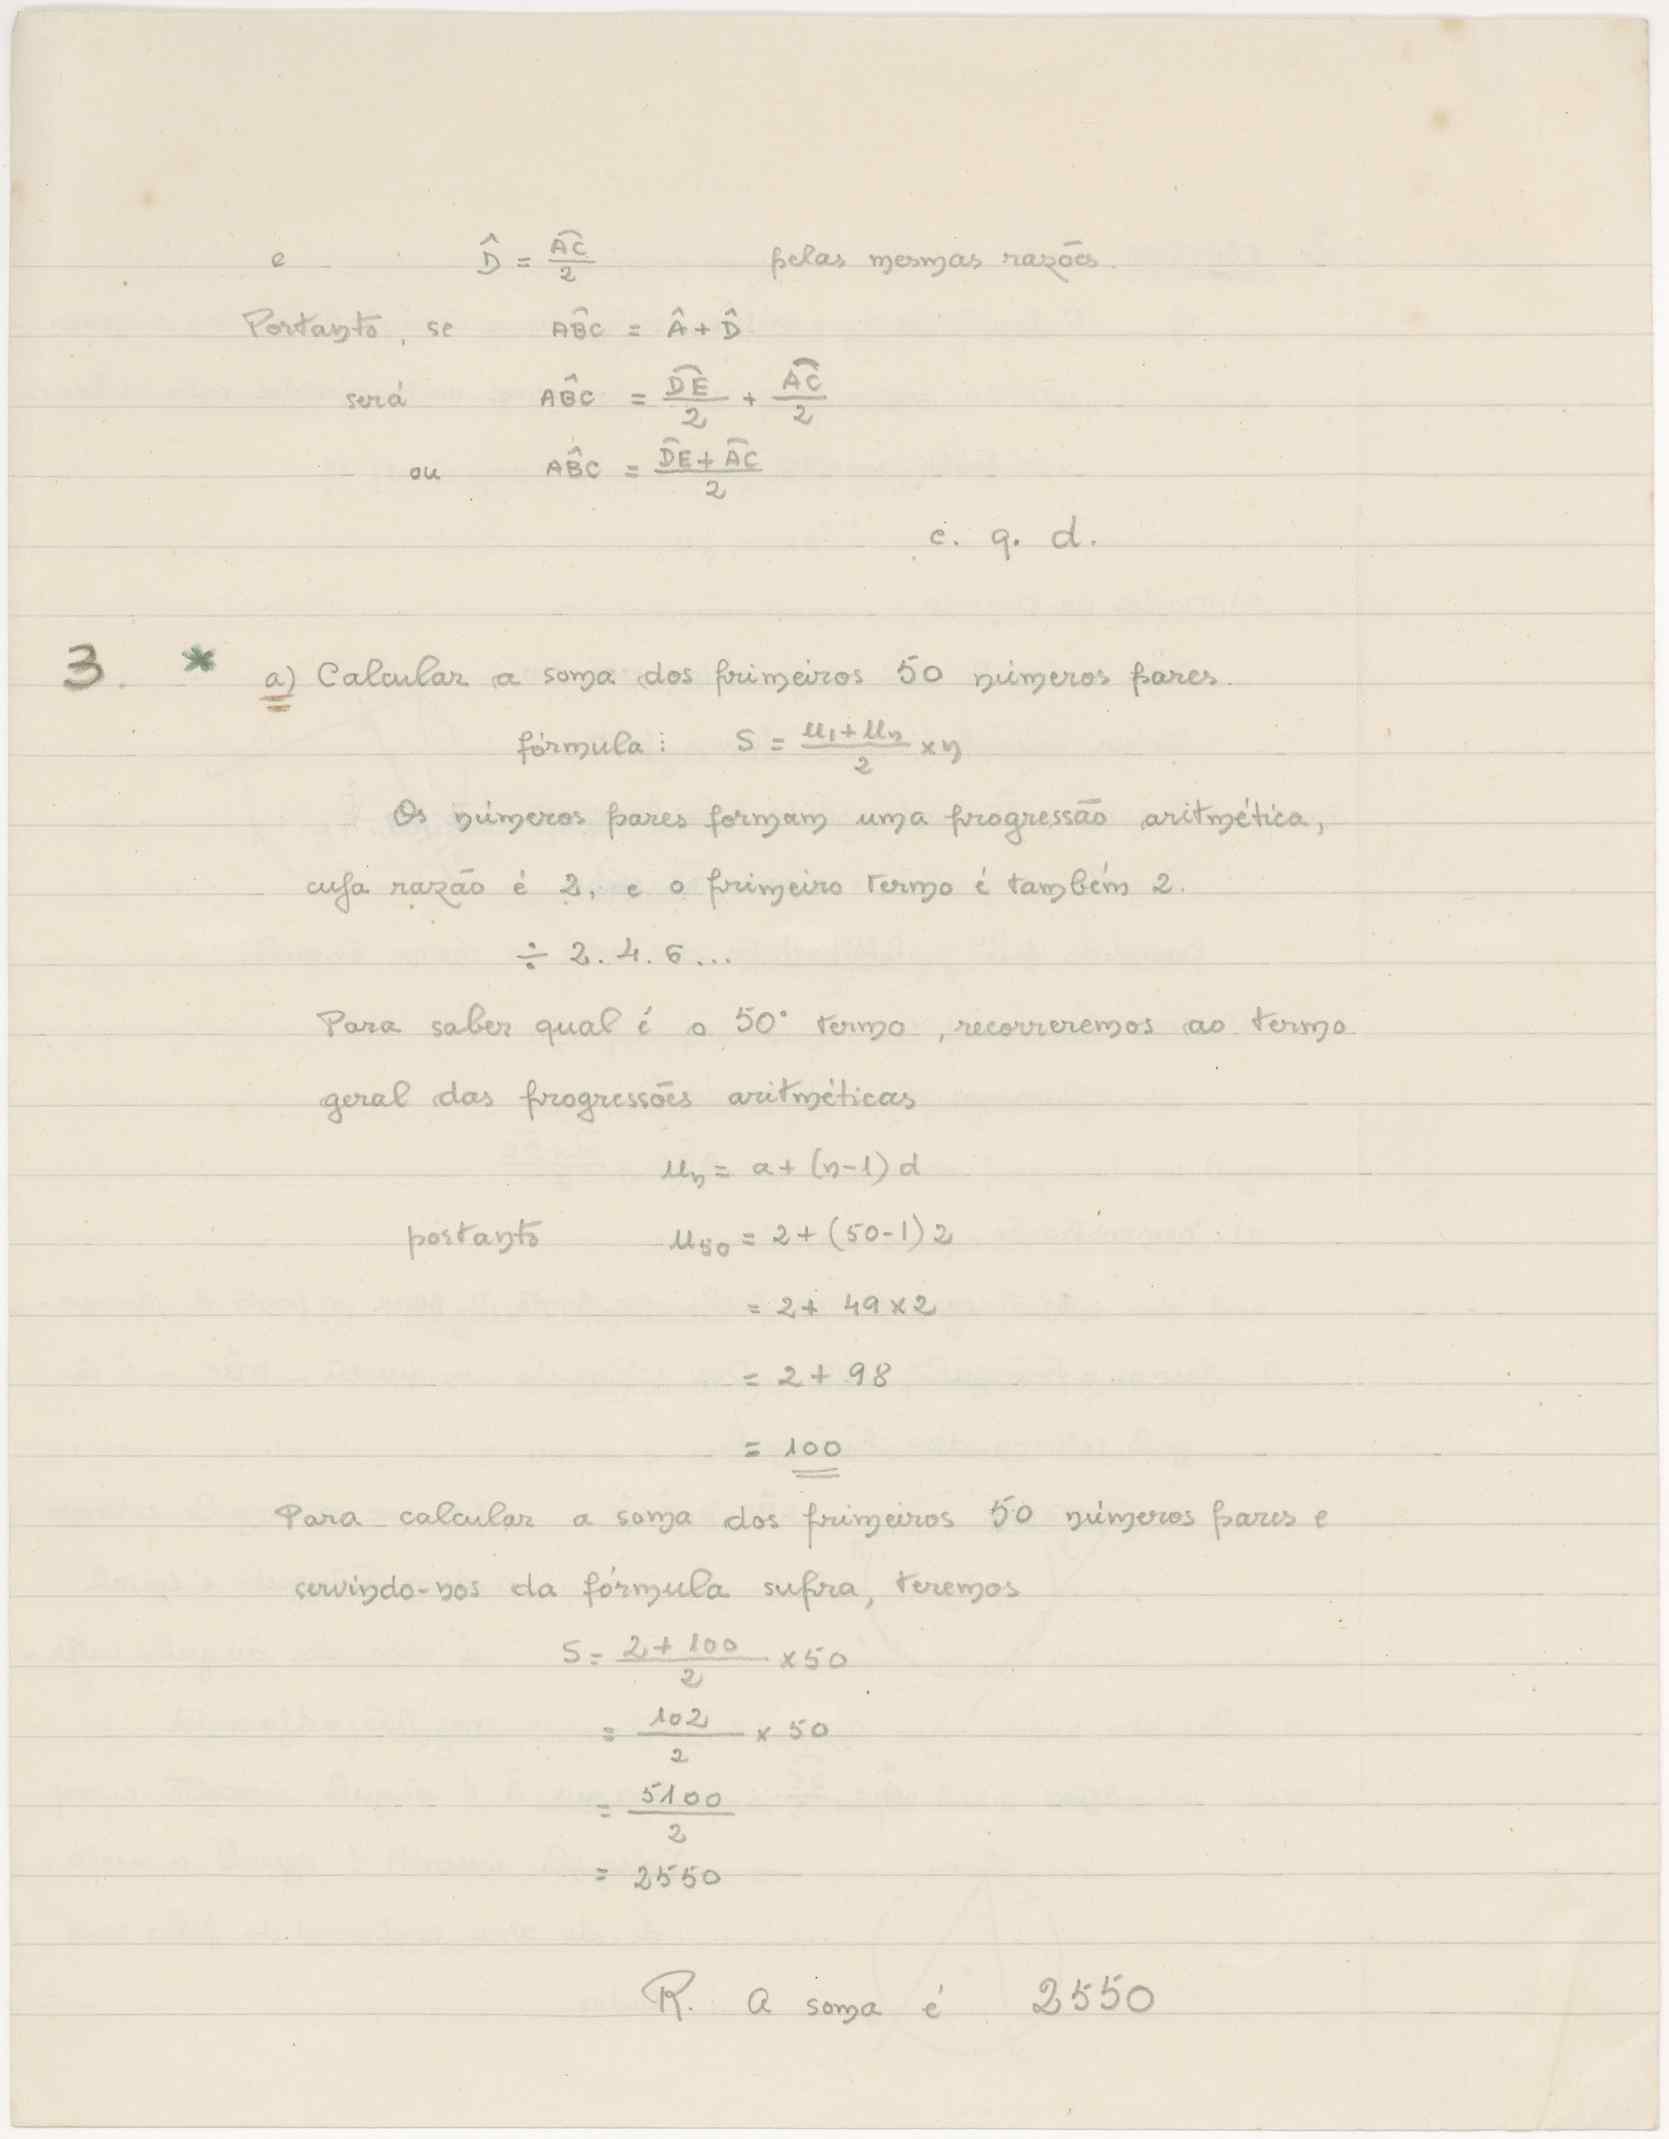 e D̂ = A͡C/2 pelas mesmas razões.
Portanto, se AB̂C = Â + D̂
será AB̂C = D͡E/2 + A͡C/2
ou AB̂C = (D͡E + A͡C)/2
c. q. d.
3. * a) Calcular a soma dos primeiros 50 números pares.
fórmula: S = (u₁ + uₙ)/2 × n
Os números pares formam uma progressão aritmética,
cuja razão é 2, e o primeiro termo é também 2.
÷ 2. 4. 6...
Para saber qual é o 50° termo, recorreremos ao termo
geral das progressões aritméticas
uₙ = a + (n-1) d
portanto u₅₀ = 2 + (50-1) 2
= 2 + 49 × 2
= 2 + 98
= 100
Para calcular a soma dos primeiros 50 números pares e
servindo-nos da fórmula supra, teremos
S = (2 + 100)/2 × 50
= 102/2 × 50
= 5100/2
= 2550
R. A soma é 2550